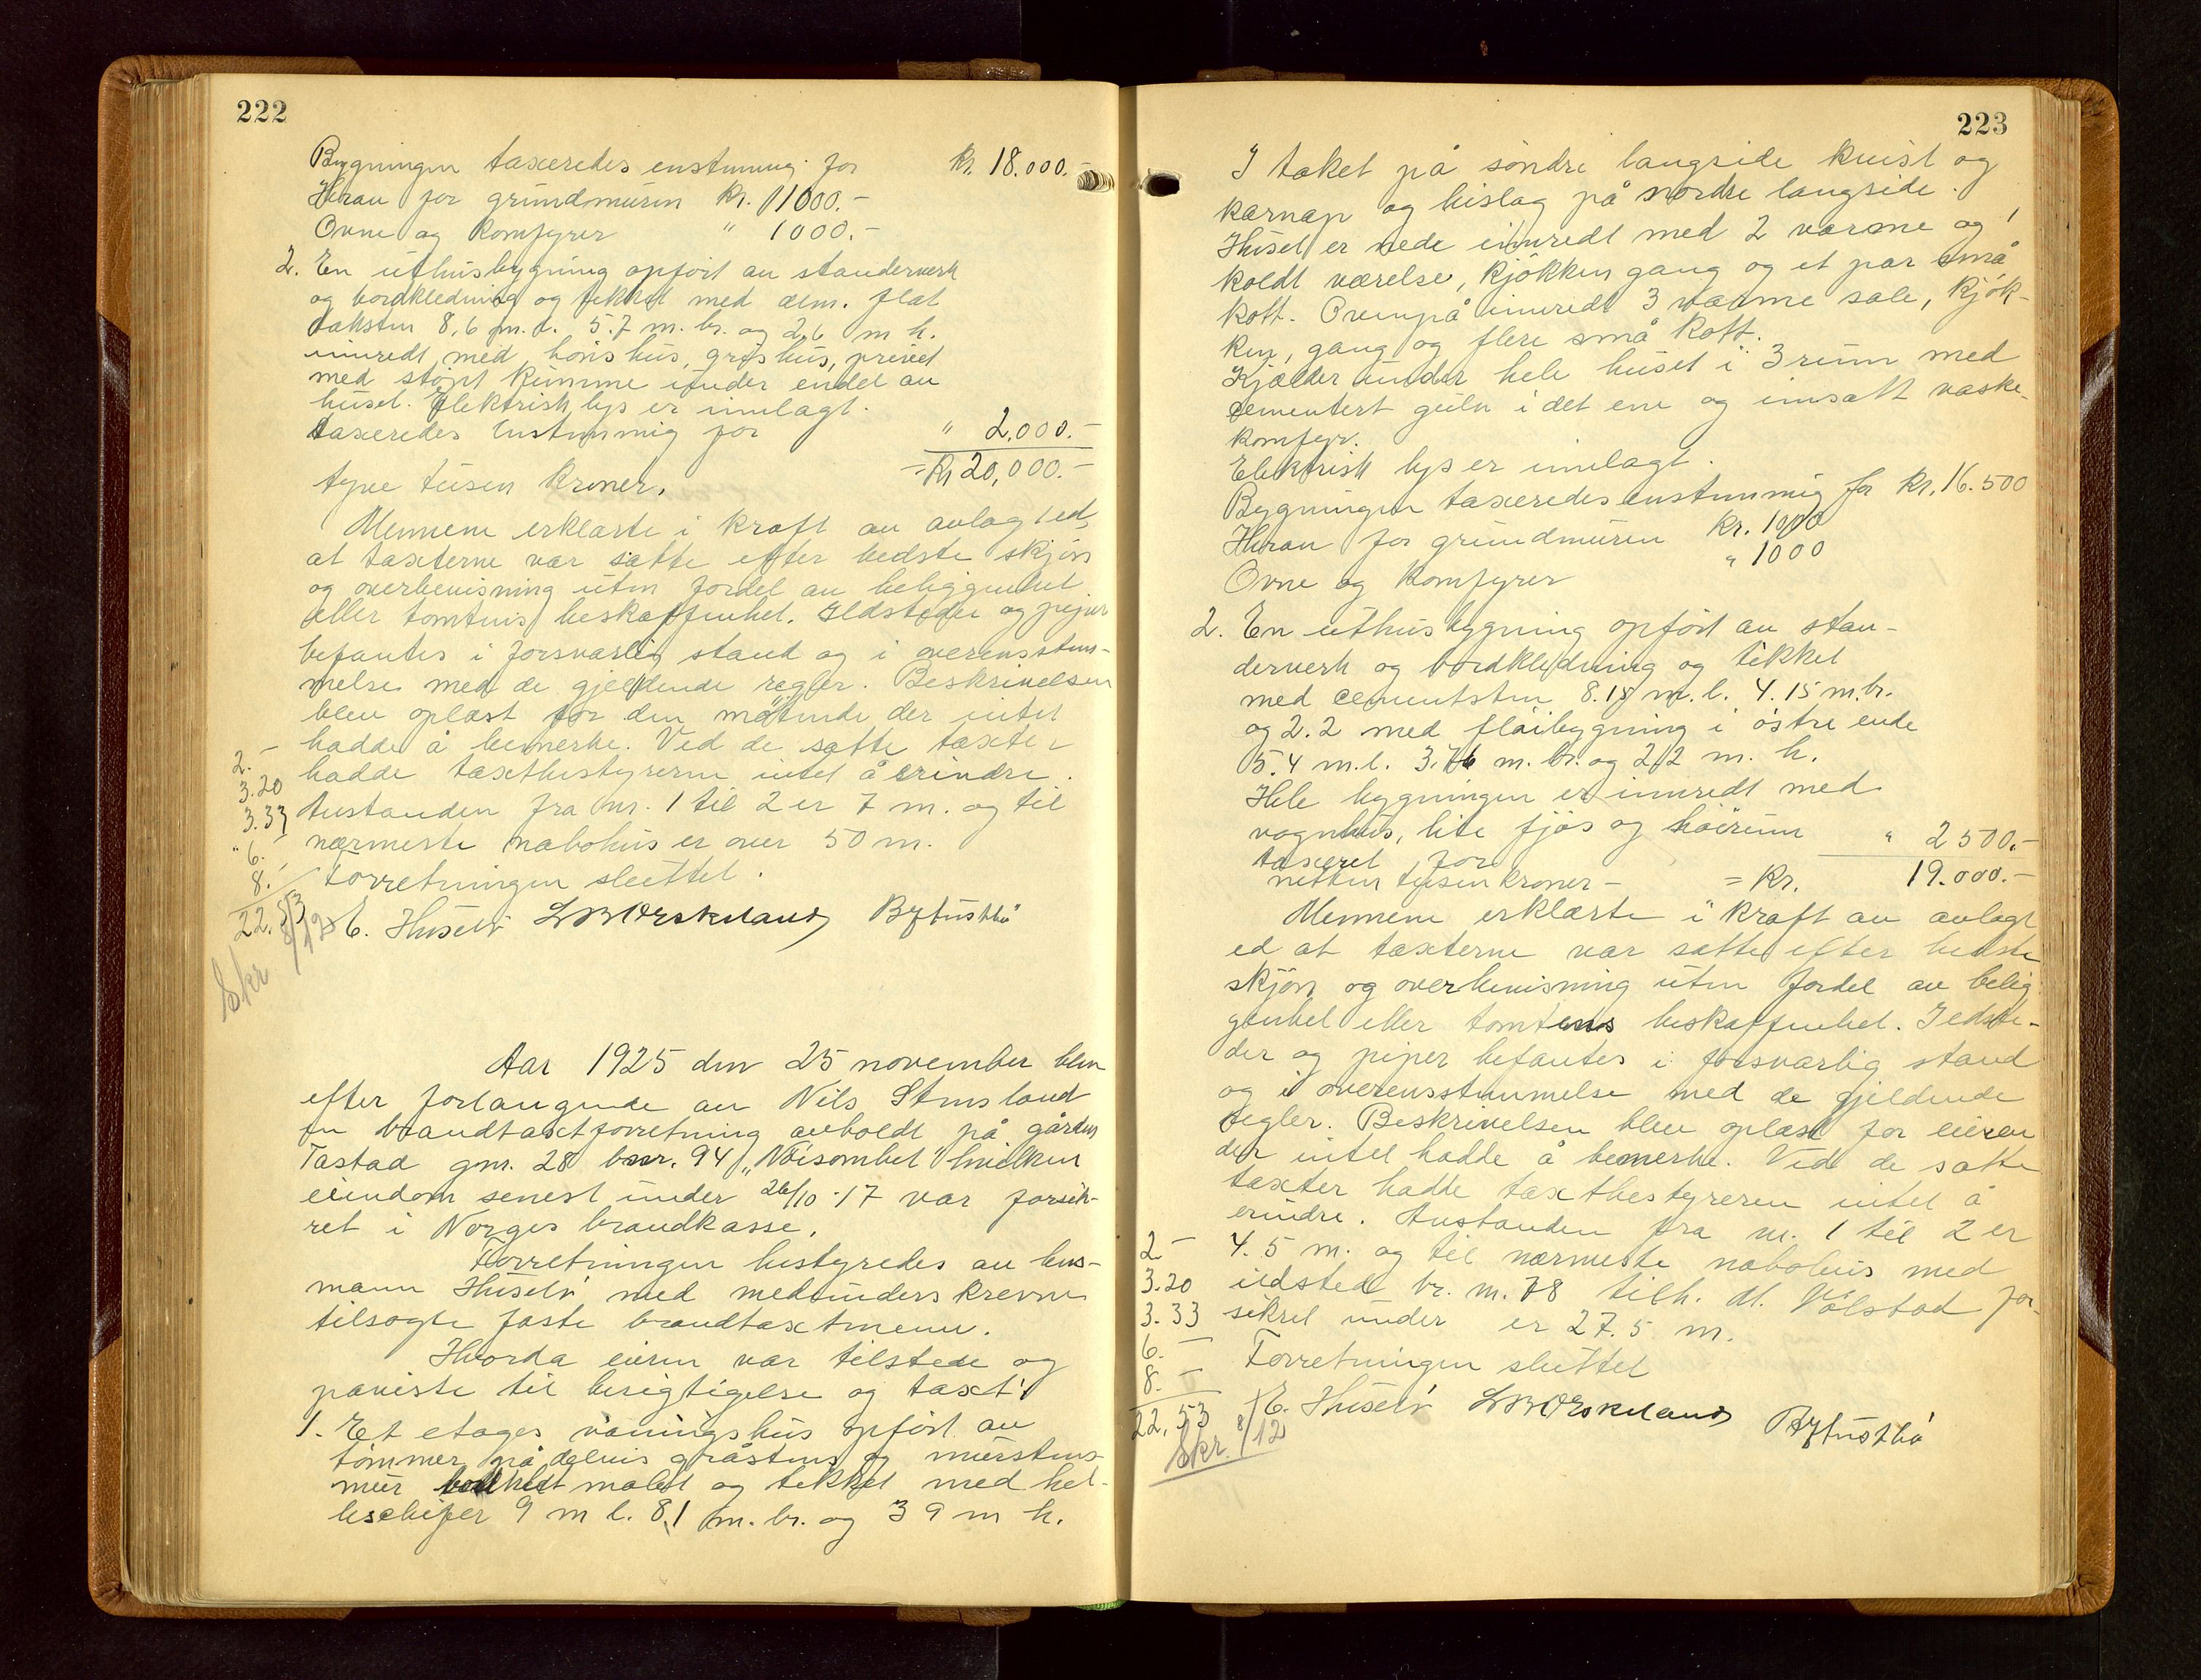 222
Bygningen taxeredes enstemmig for Kr. 18.000.-
Herav for grundmuren Kr. 1000.-
Ovne og Komfyrer " 1000.-
2. En uthusbygning opfört av standerverk
og bordkledning og tekket med alm. flat
taksten 8,6 m. l. 5.7 m. br. og 2,6 m h.
innredt med hönshus, grishus, privet
med stöpt kumme under endel av
huset. Elektrisk lys er innlagt.
taxeredes enstemmig for " 2,000.-
tyve tusen kroner. = Kr 20,000.-
Mennene erklærte i kraft av avlagt ed,
at taxterne var satte efter bedste skjön
og overbevisning uten fordel av beliggenhet
eller tomtens beskaffenhet. Ildsteder og piper
befantes i forsvarlig stand og i overensstem-
melse med de gjeldende regler. Beskrivelsen
blev oplæst for den mötende der intet
hadde å bemerke. Ved de satte taxter
hadde taxtbestyreren intet å erindre.
Avstanden fra nr. 1 til 2 er 7 m. og til
nærmeste nabohus er over 50 m.
Forretningen sluttet.
2.-
3.20
3.33
" 6.-
8.-
22.53
Skr 8/12
E. Huselv L M Orskeland B Tustbö
Aar 1925 den 25 november blev
efter forlangende av Nils Stensland
en brandtaxtforretning avholdt på gården
Tastad gnr. 28 bnr. 94 "Nöisomhet" hvilken
eiendom senest under 26/10-17 var forsik-
ret i Norges brandkasse.
Forretningen bestyredes av lens-
mann Huselv med medunderskrevne
tilsagte faste brandtaxtmenn.
Hvorda eieren var tilstede og
paviste til besigtigelse og taxt:
1. Et etages våningshus opfört av
tömmer på delvis gråstens og murstens-
mur bordkledt malet og tekket med hel-
leschifer 9 m l. 8,1 m. br. og 3 9 m h.
223
I taket på söndre langside kvist og
karnap og bislag på nordre langside.
Huset er nede innredt med 2 varme og 1
koldt værelse, kjökken gang og et par små
kott. Ovenpå innredt 3 varme sale, kjök-
ken, gang og flere små kott.
Kjælder under hele huset i 3 rum med
cementert gulv i det ene og innsatt vaske-
komfyr.
Elektrisk lys er innlagt.
Bygningen taxeredes enstemmig for Kr. 16.500
Herav for grundmuren Kr. 1000
Ovne og Komfyrer " 1000
2. En uthusbygning opfört av stan-
derverk og bordkledning og tekket
med cementsten 8.18 m. l. 4.15 m. br.
og 2.2 med flöibygning i östre ende
5.4 m. l. 3.76 m. br. og 2,2 m. h.
Hele bygningen er innredt med
vognhus, lite fjös og höirum
taxeret for " 2500.-
nitten tusen kroner - = Kr. 19.000.-
Mennene erklærte i kraft av avlagt
ed at taxterne var satte efter bedste
skjön og overbevisning uten fordel av belig
genhet eller tomtens beskaffenhet. Ildste-
der og piper befantes i forsvarlig stand
og i overensstemmelse med de gjeldende
regler. Beskrivelsen blev oplæst for eieren
der intet hadde å bemerke. Ved de satte
taxter hadde taxtbestyreren intet å
erindre. Avstanden fra nr. 1 til 2 er
4.5 m. og til nærmeste nabohus med
ildsted br. nr. 78 tilh. M. Völstad for-
sikret under er 27.5 m.
Forretningen sluttet
2-
3.20
3.33
6.-
8.-
22,53
Skr. 8/12
E. Huselv L M Orskeland B Tustbö